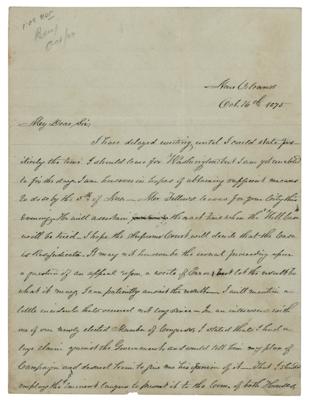 New Orleans
Oct. 16th 1875
My Dear Sir,
I have delayed writing until I could state pos-
itively the time I should leave for Washington but I am yet unable
to fix the day. I am however in hopes of obtaining sufficient means
to do so by the 5th of Nov. Mr Fellows leaves for your City this
Evening. He will ascertain the exact time when the
will be tried. I hope the Supreme Court will decide that the case
is Resjudicata. It may not however be the correct proceeding upon
a question of an appeal upon a writ of Error, but let the result be
what it may I am patiently await the result. I will mention a
little incident that occurred not long since. In an interview with
one of our newly elected Members of Congress, I stated that I had a
large claim against the Government and would tell him my plan of
Campaign and desired him to give me his opinion of it. That I should
employ the eminent lawyers to present it to the Com. of both Houses